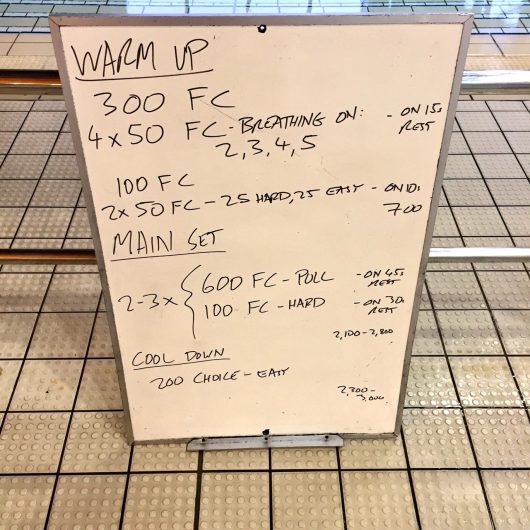 WARM UP
300 FC
4x50 FC - BREATHING ON: - ON 15s
2, 3, 4, 5 REST
100 FC
2x50 FC - 25 HARD, 25 EASY - ON 10s
700
MAIN SET
2-3x { 600 FC - PULL - ON 45s REST
100 FC - HARD - ON 30s REST
2,100 - 2,800
COOL DOWN
200 CHOICE - EASY
2,300 -
3,000